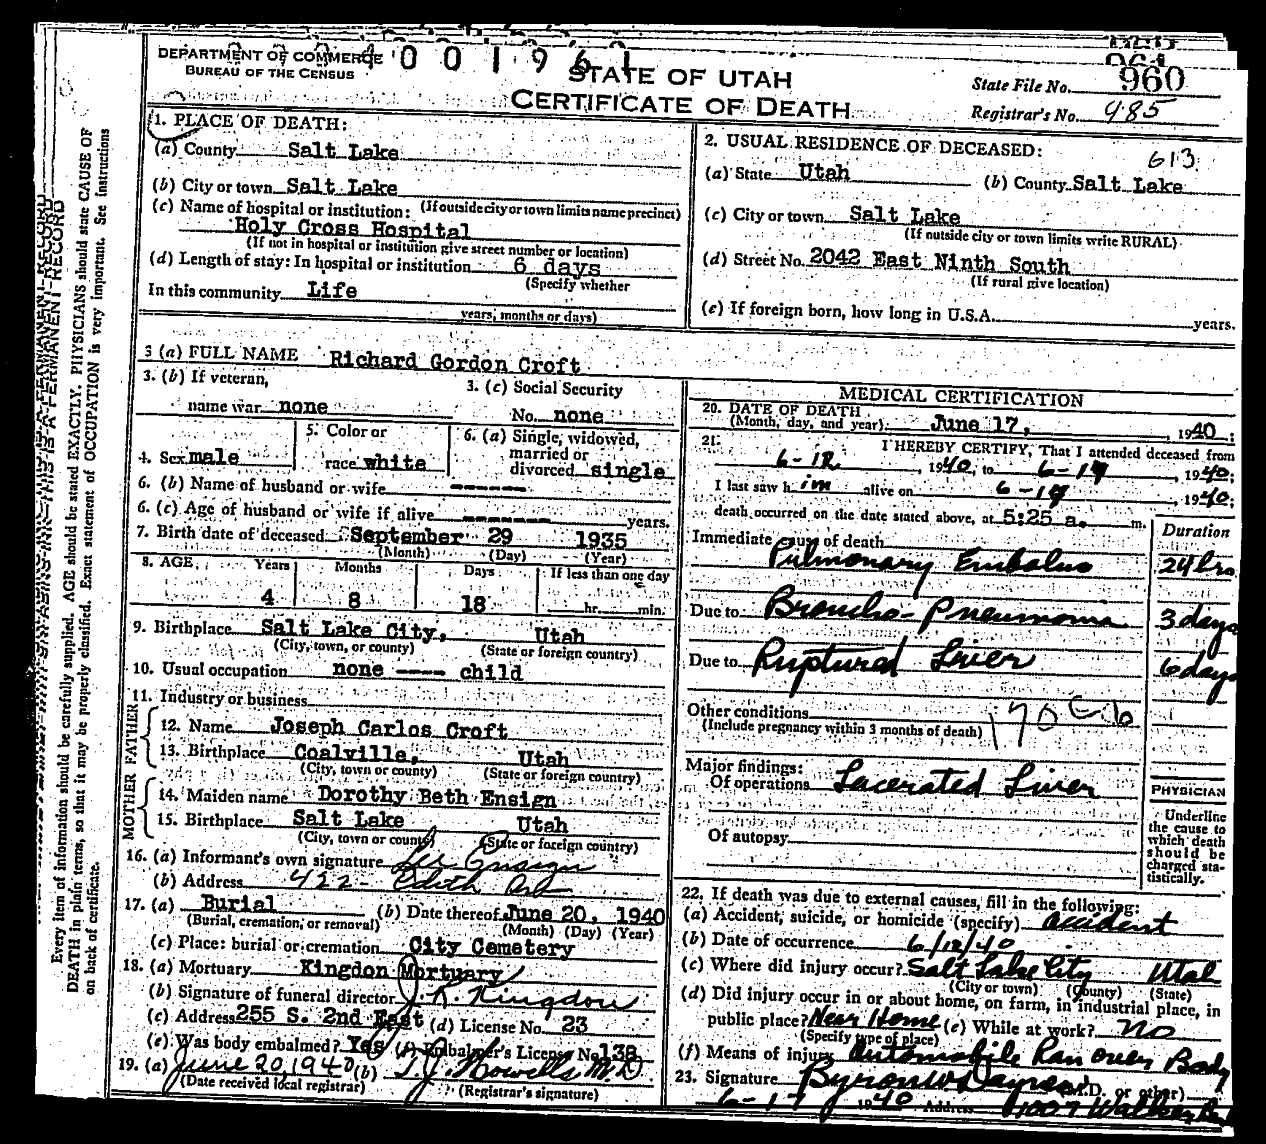 001961
DEPARTMENT OF COMMERCE
BUREAU OF THE CENSUS
STATE OF UTAH
CERTIFICATE OF DEATH
State File No. 960
Registrar's No. 485
1. PLACE OF DEATH:
(a) County Salt Lake
(b) City or town Salt Lake
(If outside city or town limits name precinct)
(c) Name of hospital or institution:
Holy Cross Hospital
(If not in hospital or institution give street number or location)
(d) Length of stay: In hospital or institution 6 days
(Specify whether
In this community Life
years, months or days)
2. USUAL RESIDENCE OF DECEASED:
613
(a) State Utah (b) County Salt Lake
(c) City or town Salt Lake
(If outside city or town limits write RURAL)
(d) Street No. 2042 East Ninth South
(If rural give location)
(e) If foreign born, how long in U.S.A. years.
3 (a) FULL NAME Richard Gordon Croft
3. (b) If veteran,
name war none
3. (c) Social Security
No. none
4. Sex male
5. Color or
race white
6. (a) Single, widowed,
married or
divorced single
6. (b) Name of husband or wife -------
6. (c) Age of husband or wife if alive ------- years.
7. Birth date of deceased September 29 1935
(Month) (Day) (Year)
8. AGE Years Months Days If less than one day
4 8 18 hr. min.
9. Birthplace Salt Lake City, Utah
(City, town, or county) (State or foreign country)
10. Usual occupation none ---- child
11. Industry or business
FATHER
12. Name Joseph Carlos Croft
13. Birthplace Coalville, Utah
(City, town or county) (State or foreign country)
MOTHER
14. Maiden name Dorothy Beth Ensign
15. Birthplace Salt Lake Utah
(City, town or county) (State or foreign country)
16. (a) Informant's own signature Ensign
(b) Address 422- Edith
17. (a) Burial (b) Date thereof June 20, 1940
(Burial, cremation, or removal) (Month) (Day) (Year)
(c) Place: burial or cremation City Cemetery
18. (a) Mortuary Kingdon Mortuary
(b) Signature of funeral director J. R. Kingdon
(c) Address 255 S. 2nd East (d) License No. 23
(e) Was body embalmed? Yes (f) Embalmer's License No. 138
19. (a) June 20, 1940 (b) T. J. Howells M.D
(Date received local registrar) (Registrar's signature)
MEDICAL CERTIFICATION
20. DATE OF DEATH
(Month, day, and year) June 17, 1940;
21. I HEREBY CERTIFY, That I attended deceased from
6-12, 1940, to 6-17, 1940;
I last saw him alive on 6-17, 1940;
death occurred on the date stated above, at 5:25 a. m.
Duration
Immediate cause of death
Pulmonary Embolus 24 hrs
Due to Broncho-Pneumonia 3 days
Due to Ruptured Liver 6 days
Other conditions
(Include pregnancy within 3 months of death)
Major findings:
Of operations Lacerated Liver
Of autopsy
PHYSICIAN
Underline
the cause to
which death
should be
charged sta-
tistically.
22. If death was due to external causes, fill in the following:
(a) Accident, suicide, or homicide (specify) Accident
(b) Date of occurrence 6/12/40
(c) Where did injury occur? Salt Lake City Utah
(City or town) (County) (State)
(d) Did injury occur in or about home, on farm, in industrial place, in
public place? Near Home (e) While at work? no
(Specify type of place)
(f) Means of injury Automobile Ran over Body
23. Signature Byron W. Daynes (M.D. or other)
6-17 1940 Address 1007 Walker
Every item of information should be carefully supplied. AGE should be stated EXACTLY. PHYSICIANS should state CAUSE OF
DEATH in plain terms, so that it may be properly classified. Exact statement of OCCUPATION is very important. See instructions
on back of certificate.